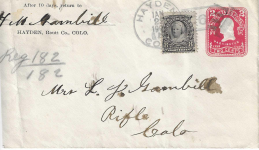 After 10 days, return to
F. M. Gambill
HAYDEN, Routt Co., COLO.
HAYDEN
Reg 182
182
Mrs L. J. Gambill
Rifle
Colo